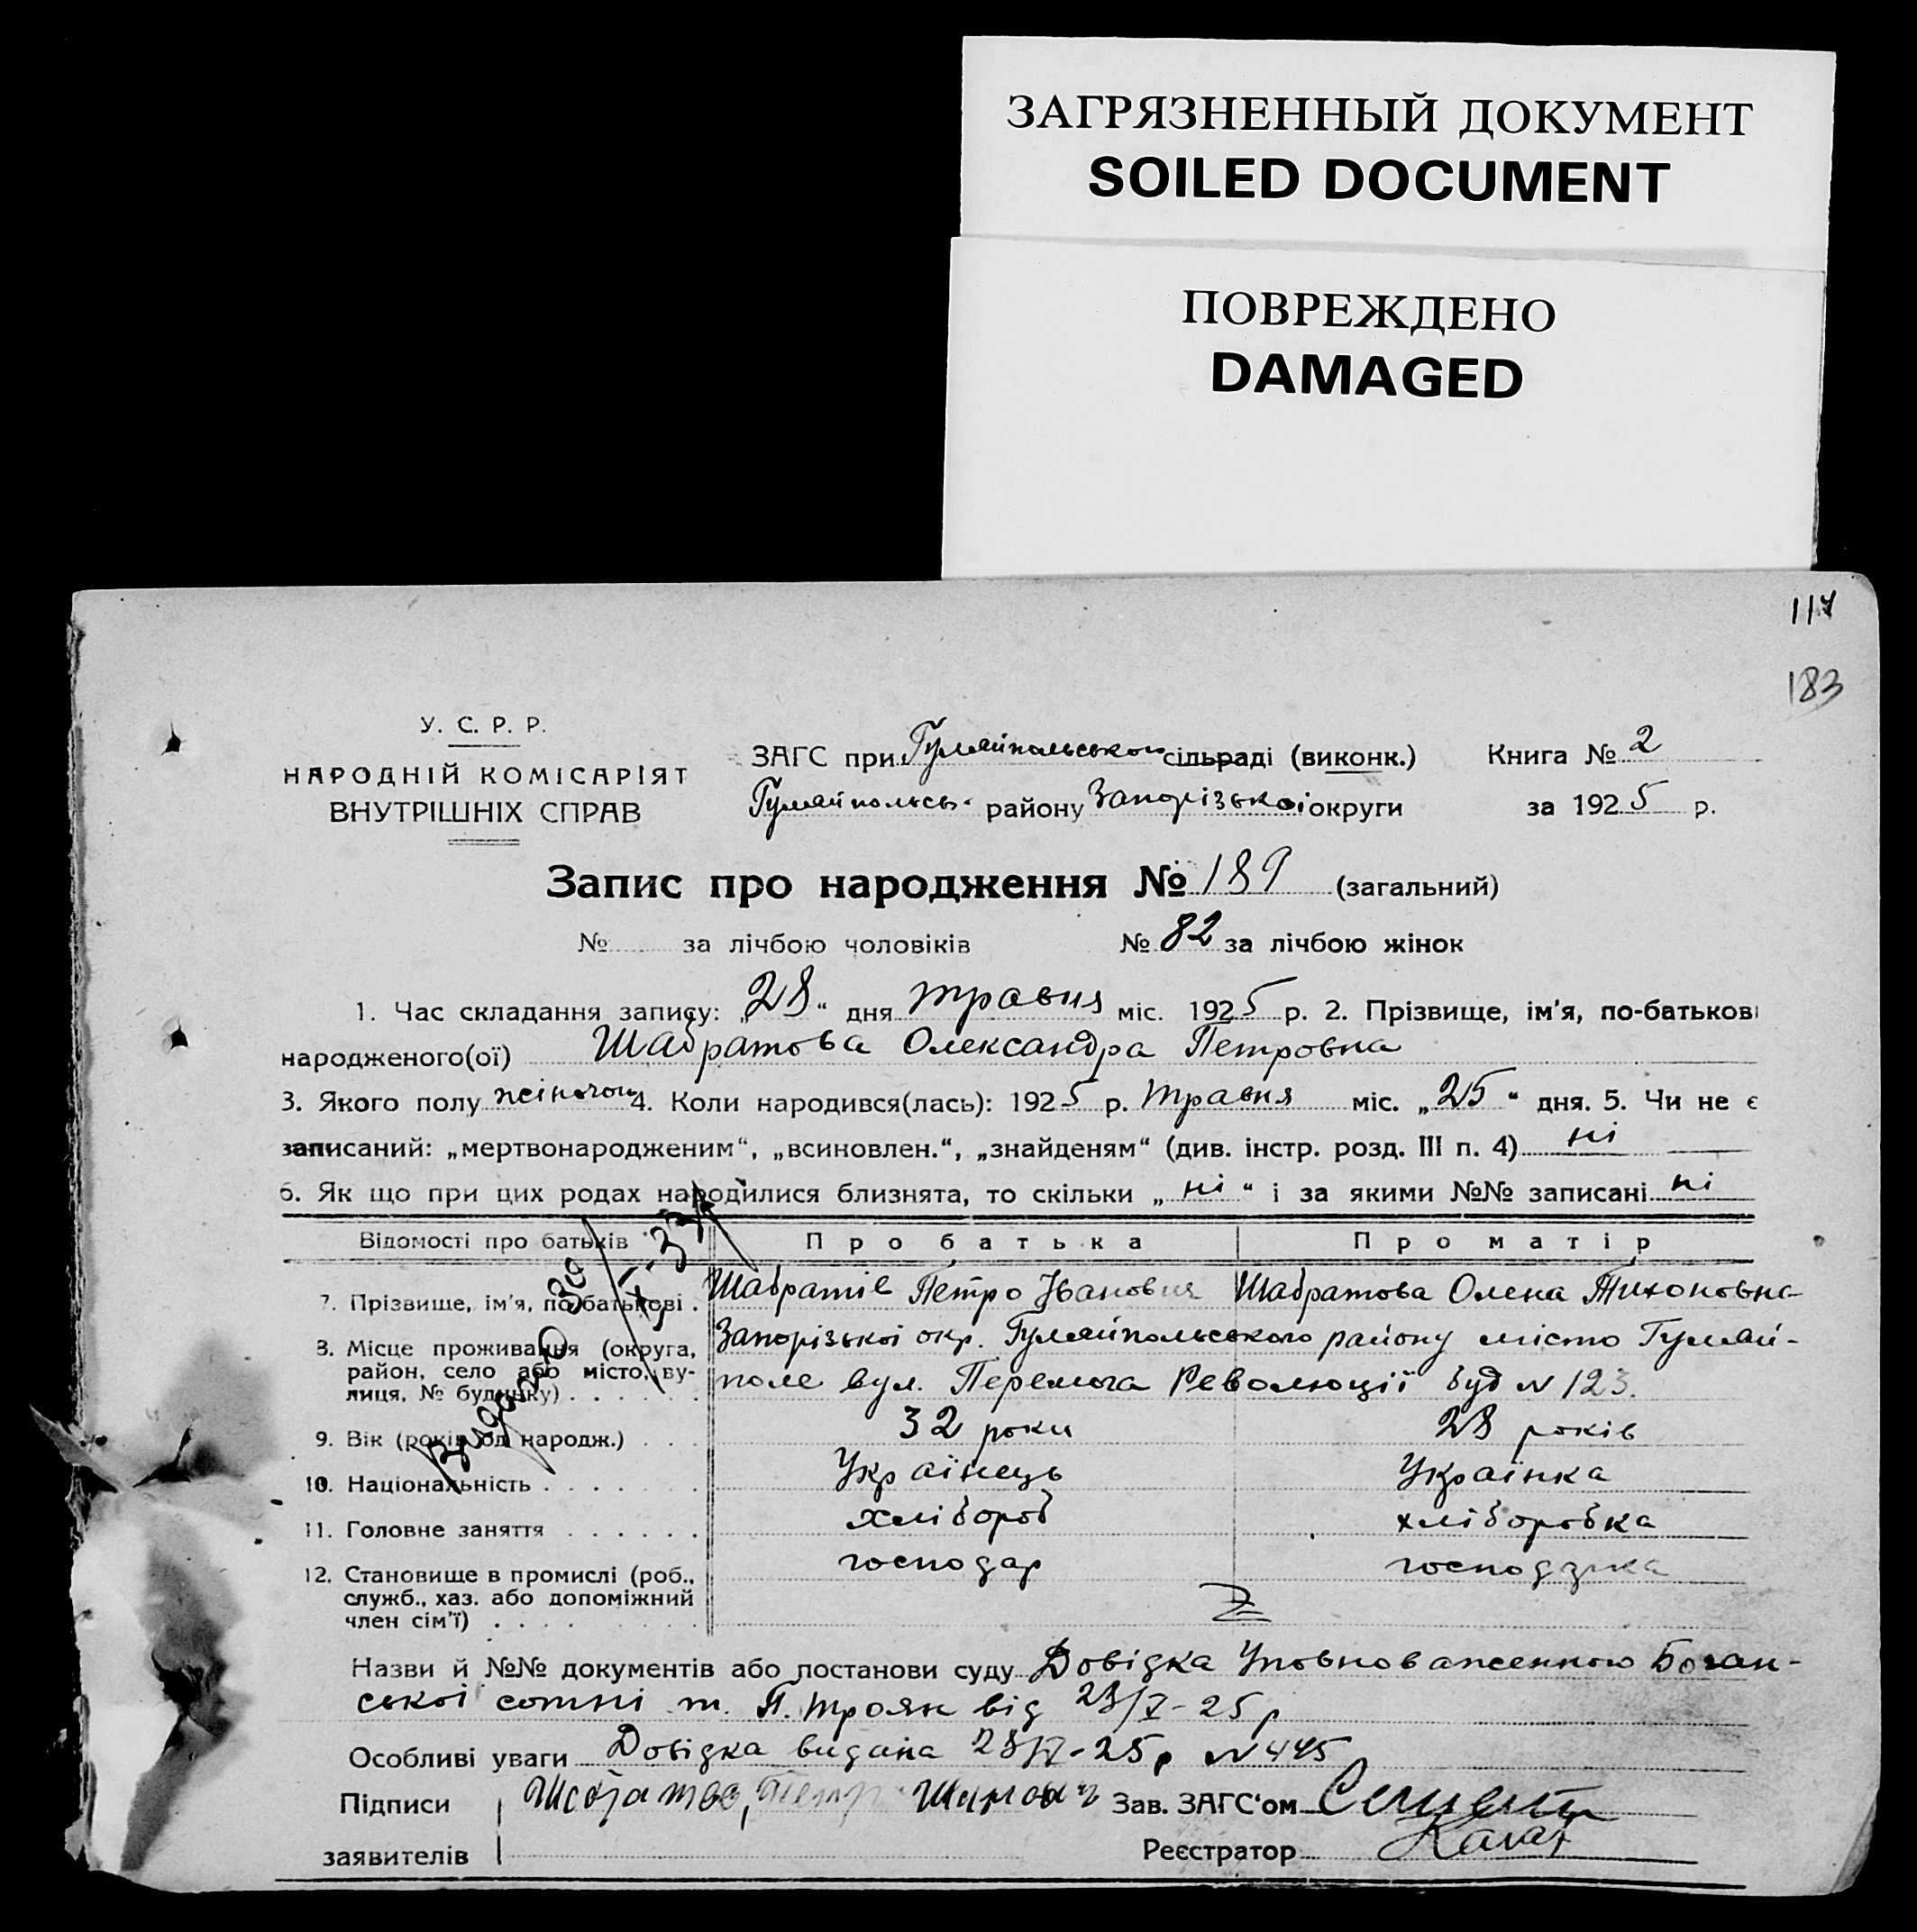 ЗАГРЯЗНЕННЫЙ ДОКУМЕНТ
SOILED DOCUMENT
ПОВРЕЖДЕНО
DAMAGED
117
183
У. С. Р. Р.
НАРОДНІЙ КОМІСАРІЯТ
ВНУТРІШНІХ СПРАВ
ЗАГС при Гуляйпольському сільраді (виконк.) Книга № 2
Гуляйпольсь. району Запорізької округи за 1925 р.
Запис про народження № 189 (загальний)
№ за лічбою чоловіків № 82 за лічбою жінок
1. Час складання запису: „28“ дня травня міс. 1925 р. 2. Прізвище, ім'я, по-батькові
народженого(ої) Шабратова Олександра Петровна
3. Якого полу жіночого 4. Коли народився(лась): 1925 р. травня міс. „25“ дня. 5. Чи не є
записаний: „мертвонародженим“, „всиновлен.“, „знайденям“ (див. інстр. розд. III п. 4) ні
6. Як що при цих родах народилися близнята, то скільки „ні“ і за якими №№ записані ні
Відомості про батьків Про батька Про матір
7. Прізвище, ім'я, по батькові . Шабратів Петро Іванович Шабратова Олена Тихоновна
8. Місце проживання (округа, район, село або місто, вулиця, № будинку) . . . . . . Запорізької окр. Гуляйпольського району місто Гуляй-
поле вул. Перемога Революції буд N 123.
9. Вік (років од народж.) . . . 32 роки 28 років
10. Національність . . . . . . . Українець Українка
11. Головне заняття . . . . . . хлібороб хліборобка
12. Становище в промислі (роб., служб., хаз. або допоміжний член сім'ї) . . . . . . . господар господарка
Назви й №№ документів або постанови суду Довідка Уповноваженного Боган-
ської сотні т. П. Троян від 28/V-25 р
Особливі уваги Довідка видана 28/V-25 р N 445
Підписи Шабратов, Петр Зав. ЗАГС'ом
заявителів Реєстратор